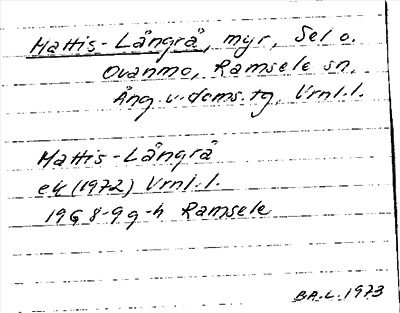 Mattis-Långrå, myr, Sel o.
Ovanmo, Ramsele sn,
Ång.v. doms.tg, Vrnl.l.
Mattis-Långrå
ek (1972) Vrnl.l.
19G 8-9 g-h Ramsele
BA.L.1973